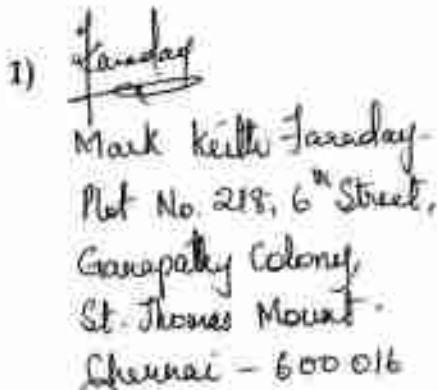 1) Faraday
Mark Keith Faraday
Plot No. 218, 6th Street,
Ganapathy Colony,
St. Thomas Mount.
Chennai - 600016